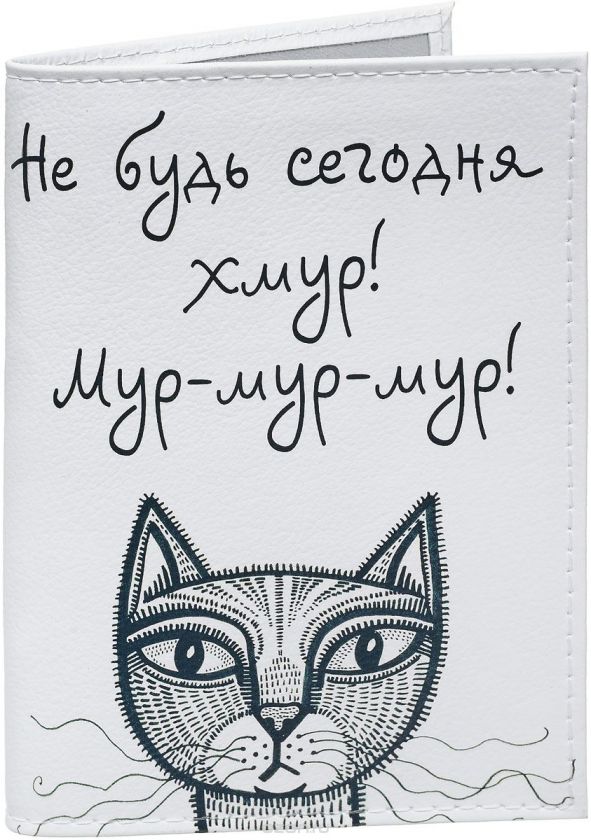 Не будь сегодня
хмур!
Мур-мур-мур!